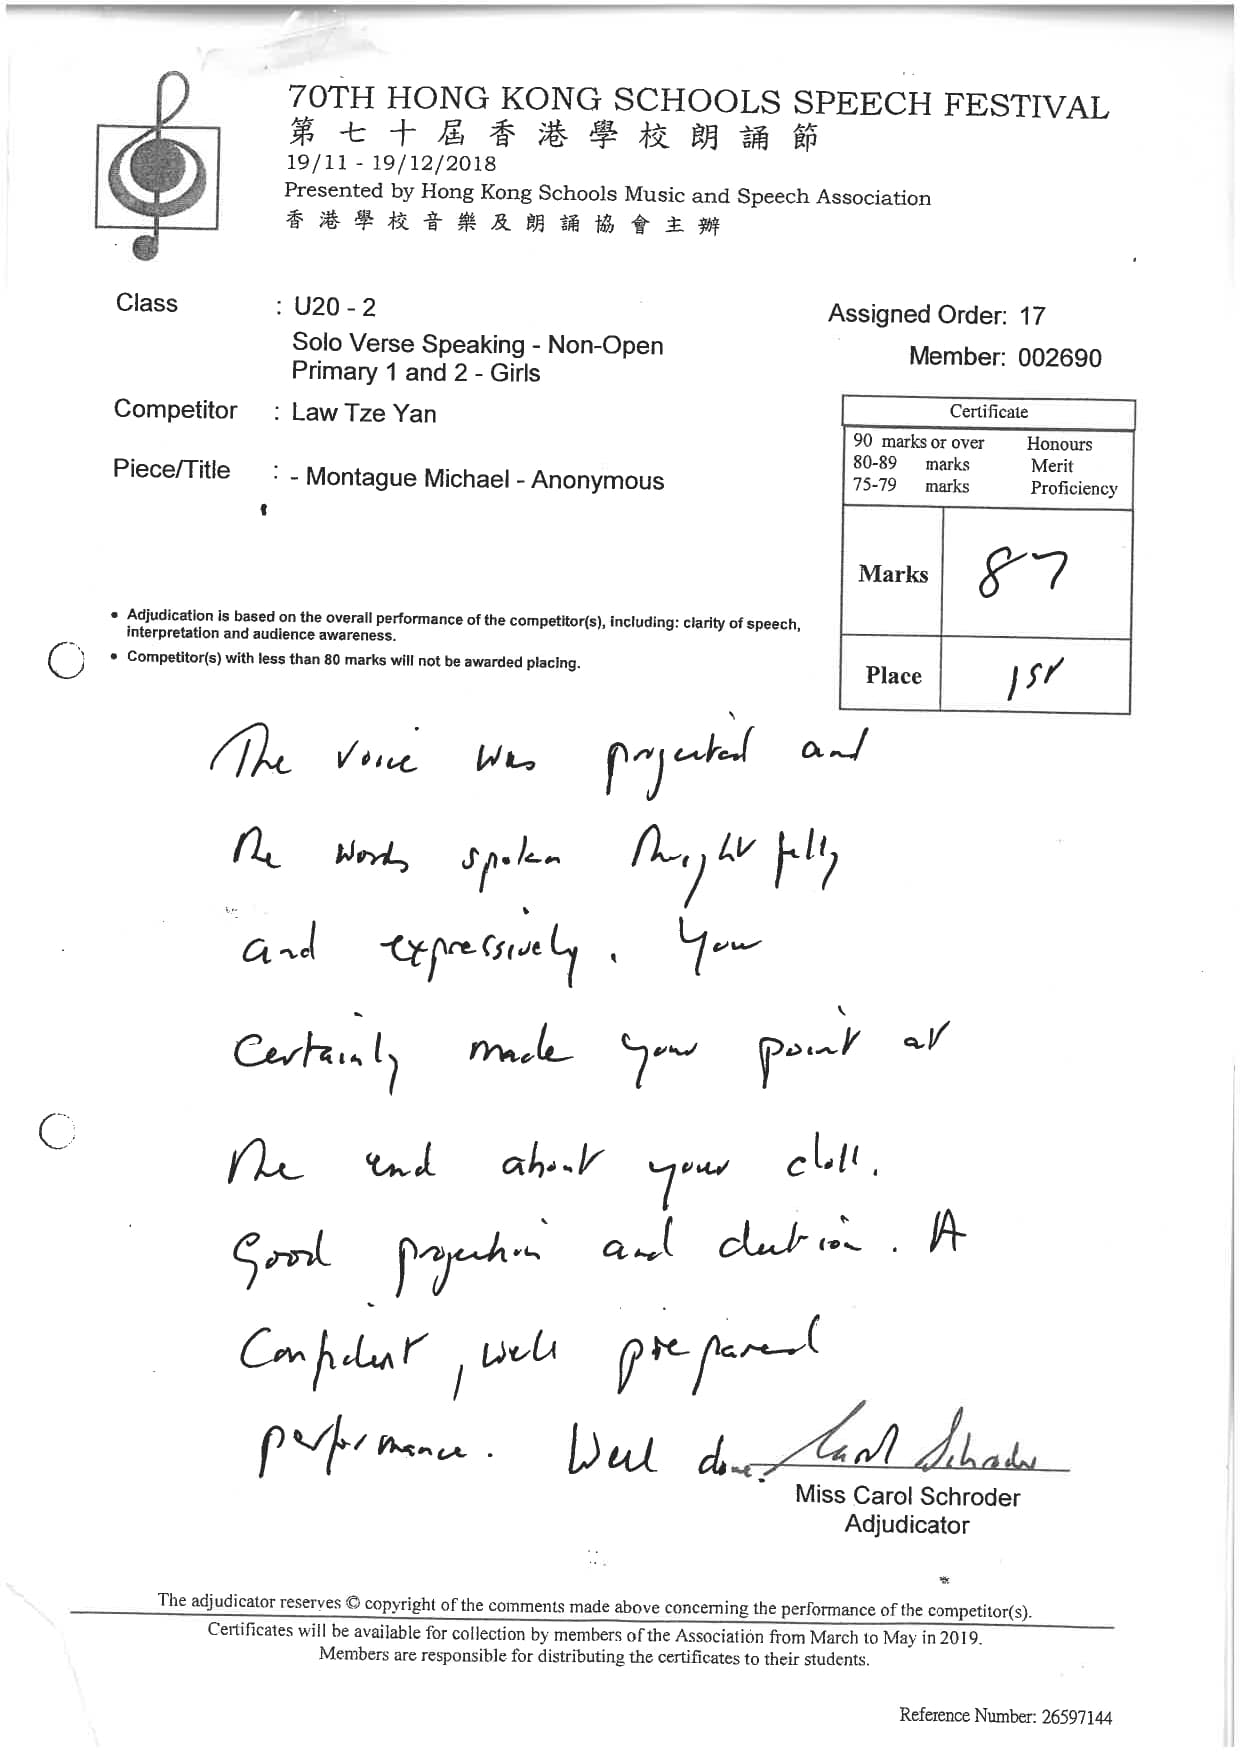 70TH HONG KONG SCHOOLS SPEECH FESTIVAL
第七十屆香港學校朗誦節
19/11 - 19/12/2018
Presented by Hong Kong Schools Music and Speech Association
香港學校音樂及朗誦協會主辦
Class : U20 - 2
Solo Verse Speaking - Non-Open
Primary 1 and 2 - Girls
Assigned Order: 17
Member: 002690
Competitor : Law Tze Yan
Piece/Title : - Montague Michael - Anonymous
Certificate
90 marks or over Honours
80-89 marks Merit
75-79 marks Proficiency
Marks 87
Place 1st
• Adjudication is based on the overall performance of the competitor(s), including: clarity of speech,
interpretation and audience awareness.
• Competitor(s) with less than 80 marks will not be awarded placing.
The voice was projected and
the words spoken thoughtfully
and expressively. You
certainly made your point at
the end about your doll.
Good projection and diction. A
confident, well prepared
performance. Well done.
Carol Schroder
Miss Carol Schroder
Adjudicator
The adjudicator reserves © copyright of the comments made above concerning the performance of the competitor(s).
Certificates will be available for collection by members of the Association from March to May in 2019.
Members are responsible for distributing the certificates to their students.
Reference Number: 26597144